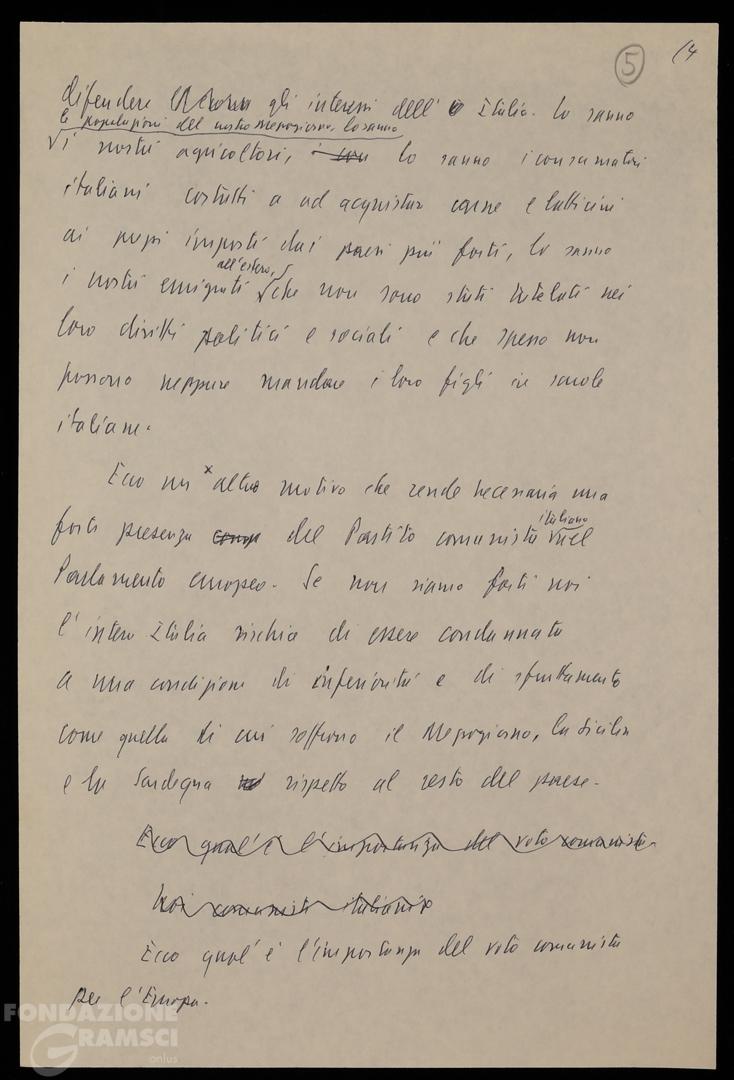 5
14
difendere gli interessi dell' Italia. Lo sanno
le popolazioni del nostro Mezzogiorno, lo sanno
i nostri agricoltori, lo sanno i consumatori
italiani costretti a ad acquistare carne e latticini
ai prezzi imposti dai paesi più forti, lo sanno
all'estero,
i nostri emigrati che non sono stati tutelati nei
loro diritti politici e sociali e che spesso non
possono neppure mandare i loro figli in scuole
italiane.
Ecco un altro motivo che rende necessaria una
italiano
forte presenza del Partito comunista nel
Parlamento europeo. Se non siamo forti noi
l'intera Italia rischia di essere condannata
a una condizione di inferiorità e di sfruttamento
come quella di cui soffrono il Mezzogiorno, la Sicilia
e la Sardegna rispetto al resto del paese.
Ecco qual'è l'importanza del voto comunista
Noi comunisti italiani
Ecco qual'è l'importanza del voto comunista
per l'Europa.
FONDAZIONE
GRAMSCI
onlus